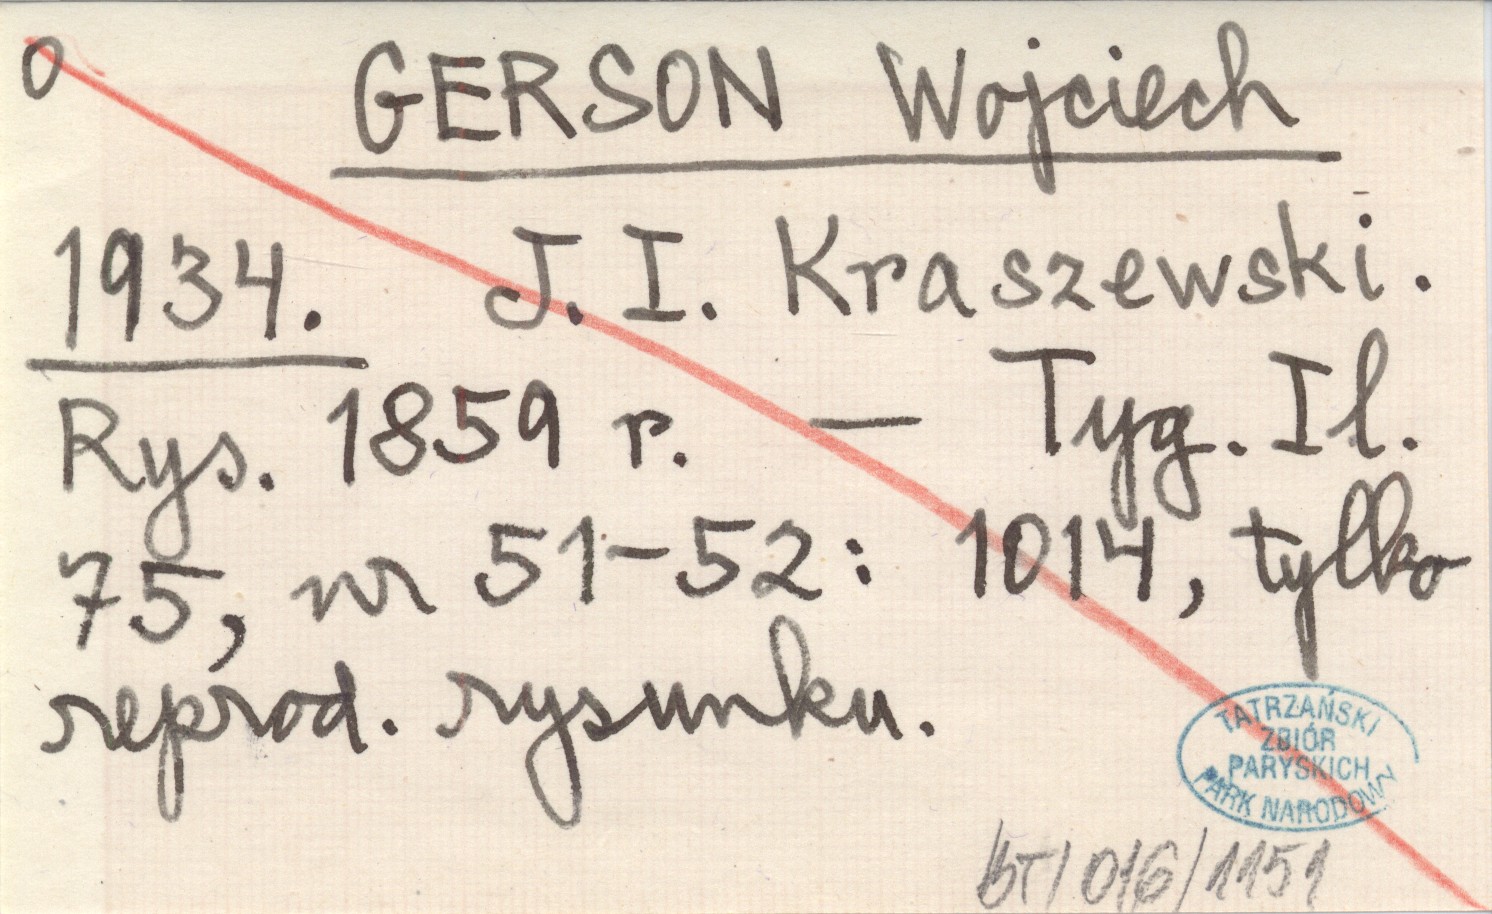 0 GERSON Wojciech
1934. J. I. Kraszewski.
Rys. 1859 r. — Tyg. Il.
75, nr 51-52: 1014, tylko
reprod. rysunku.
TATRZAŃSKI
ZBIÓR
PARYSKICH
PARK NARODOWY
bT/016/1151